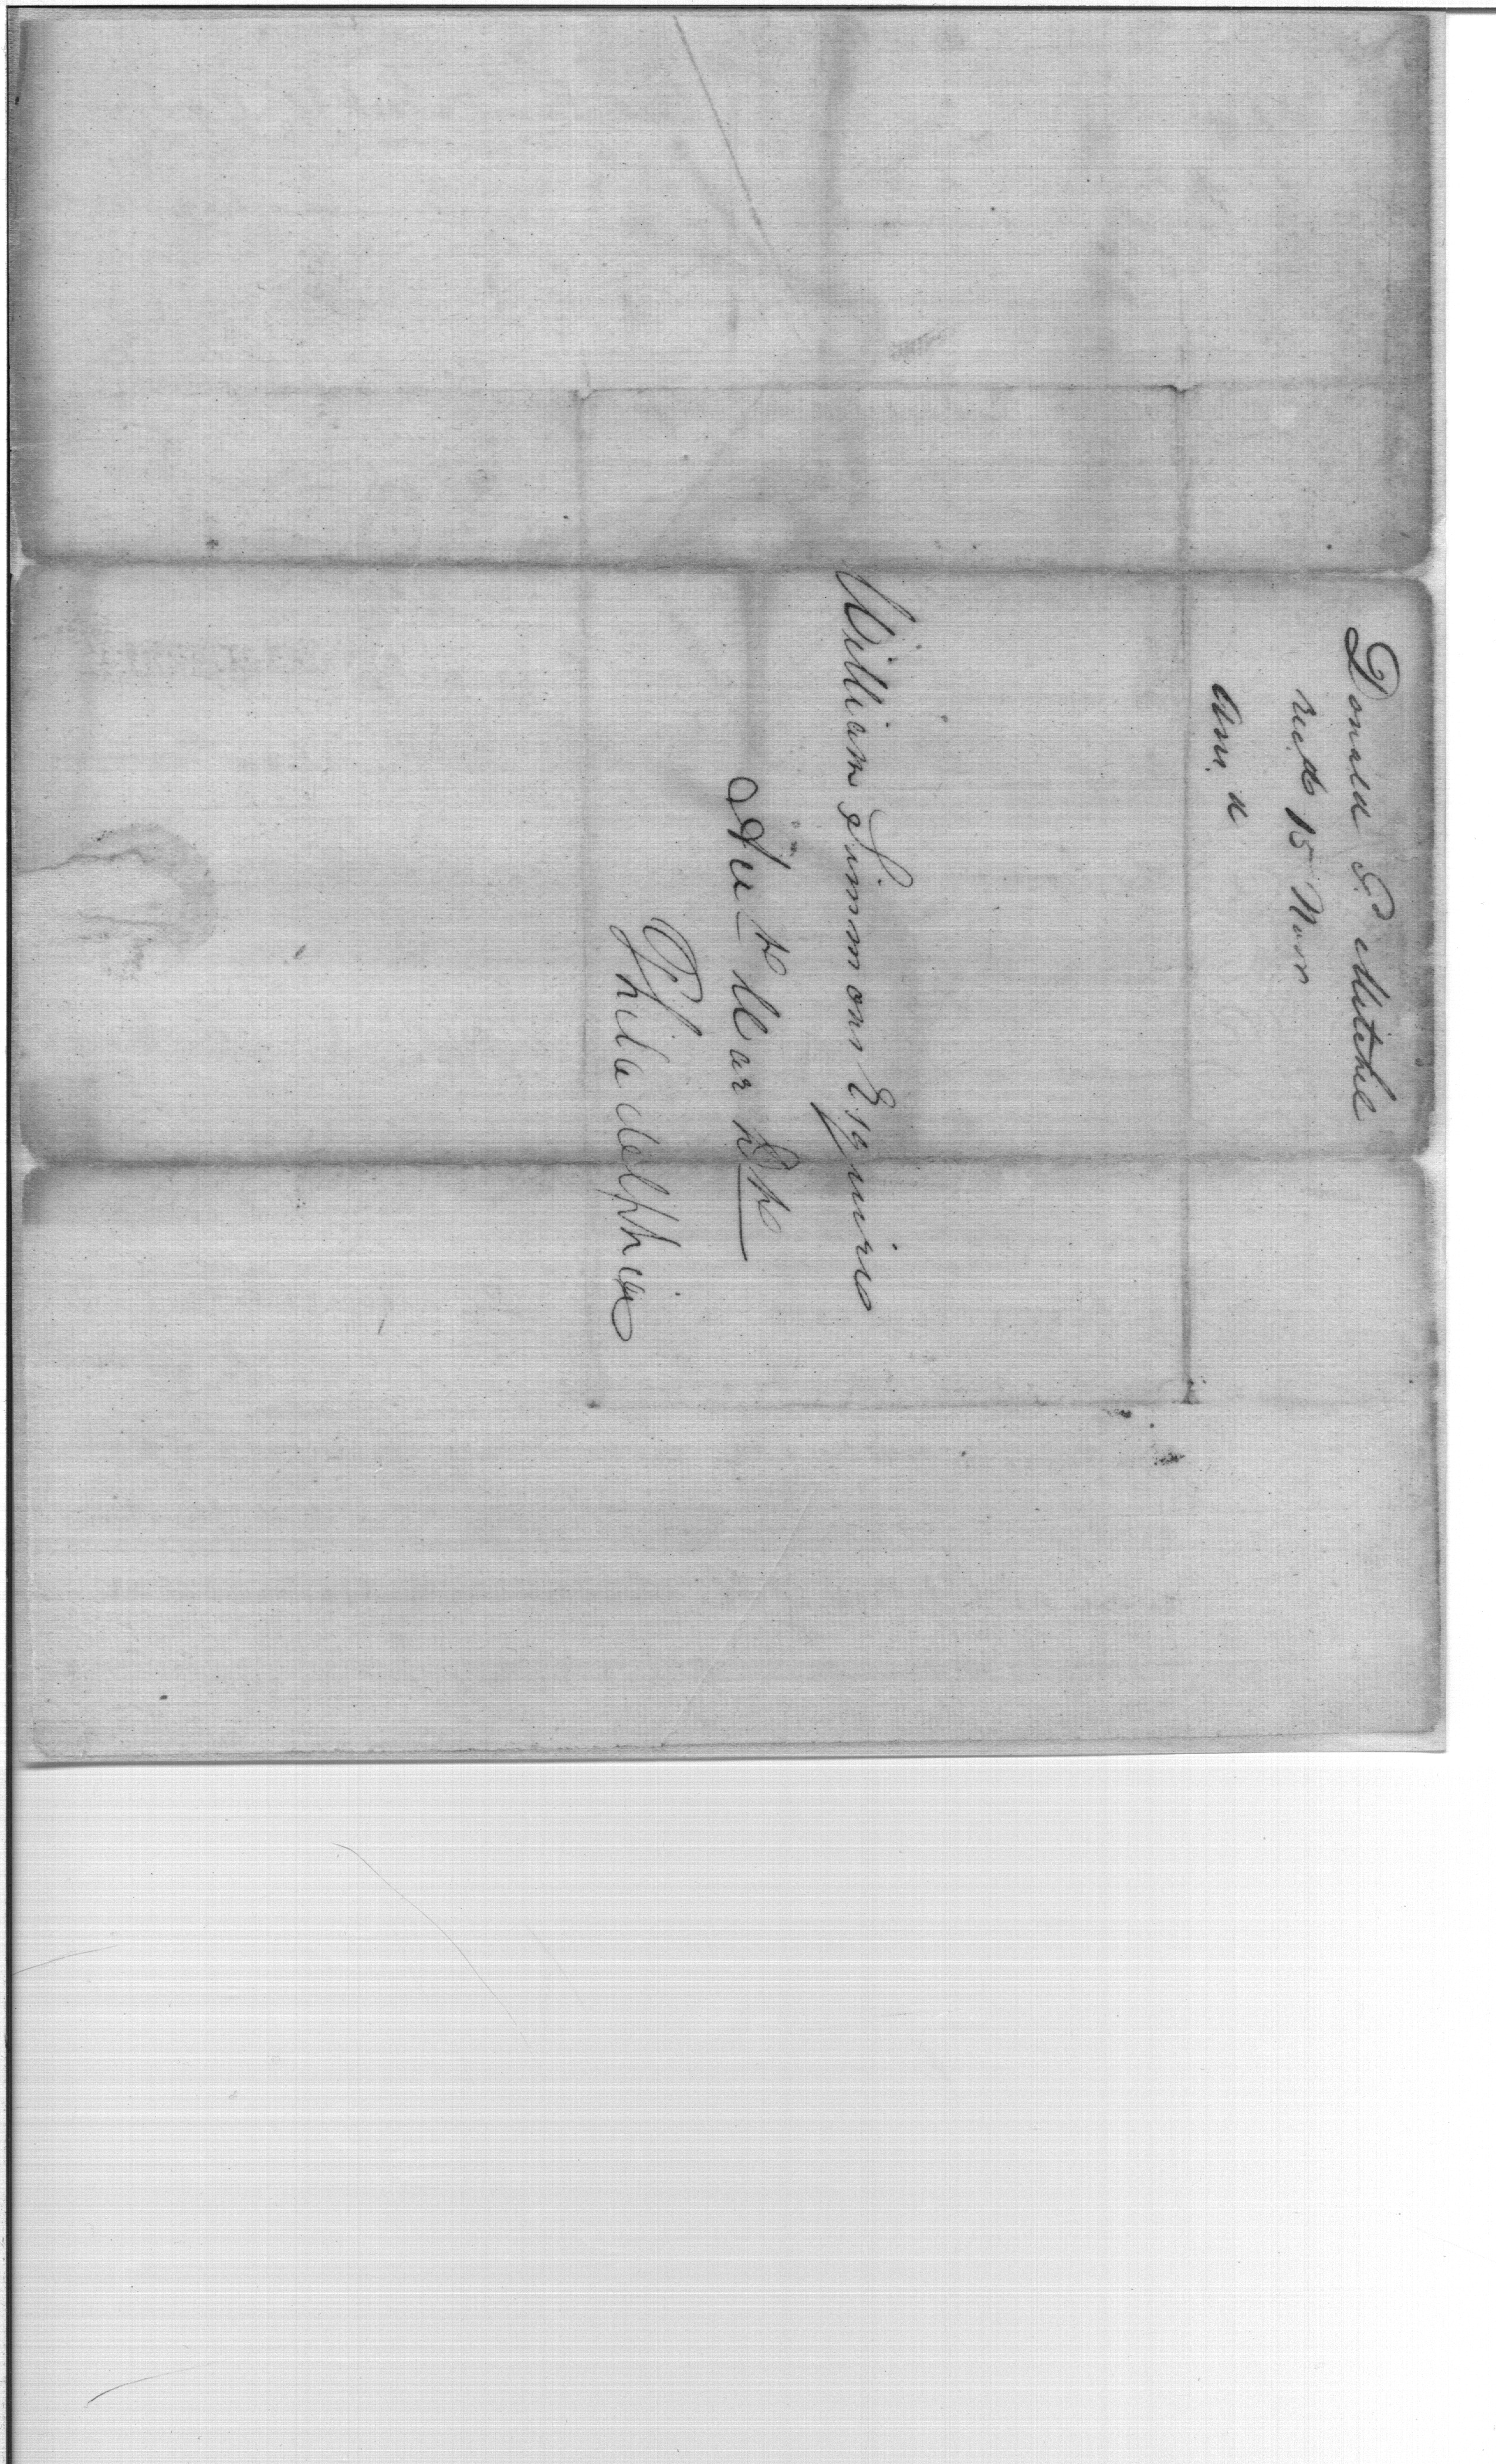 Donald G. Mitchel
recd 15 Novr
William Simmons Esquire
Act. War Dt
Philadelphia